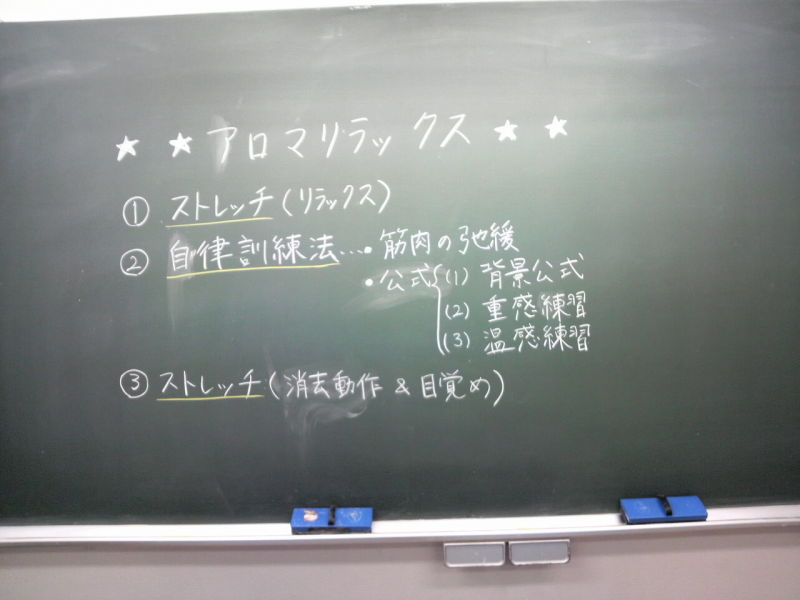 ★ ★ アロマリラックス ★ ★
① ストレッチ(リラックス)
② 自律訓練法…・筋肉の弛緩
・公式{(1) 背景公式
(2) 重感練習
(3) 温感練習
③ ストレッチ(消去動作 & 目覚め)